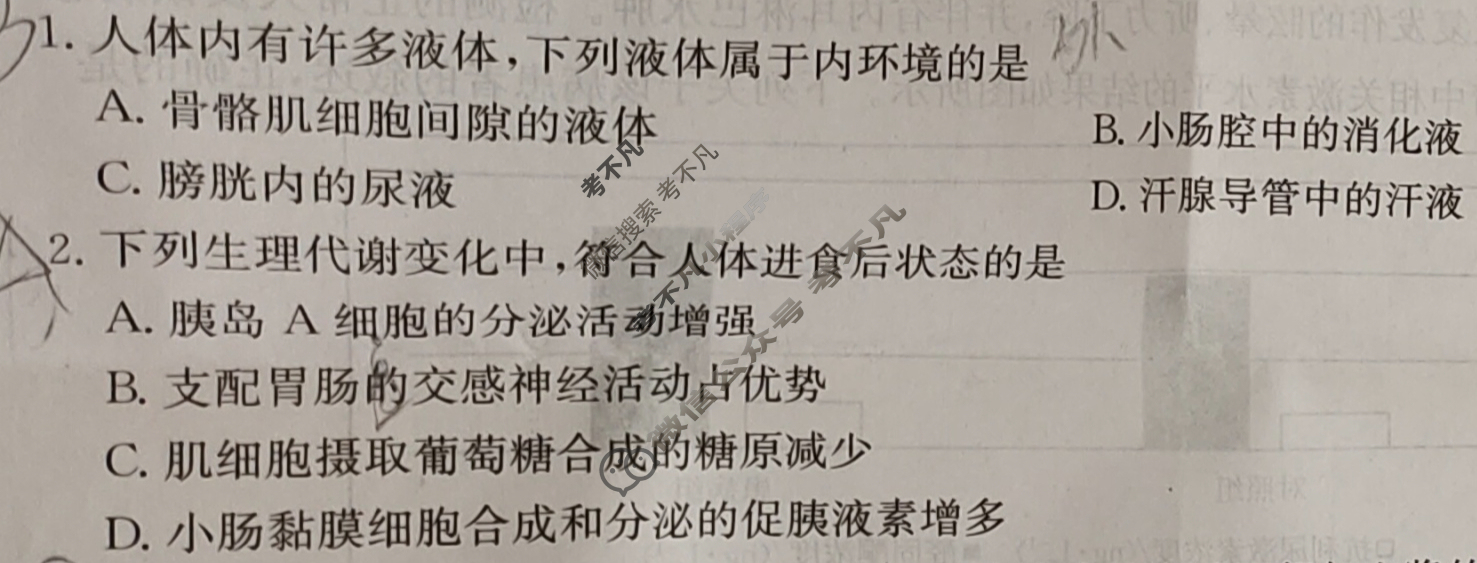 1. 人体内有许多液体,下列液体属于内环境的是
A. 骨骼肌细胞间隙的液体
B. 小肠腔中的消化液
C. 膀胱内的尿液
D. 汗腺导管中的汗液
2. 下列生理代谢变化中,符合人体进食后状态的是
A. 胰岛 A 细胞的分泌活动增强
B. 支配胃肠的交感神经活动占优势
C. 肌细胞摄取葡萄糖合成的糖原减少
D. 小肠黏膜细胞合成和分泌的促胰液素增多
考不凡
微信搜索 考不凡
考不凡小程序
微信公众号 考不凡